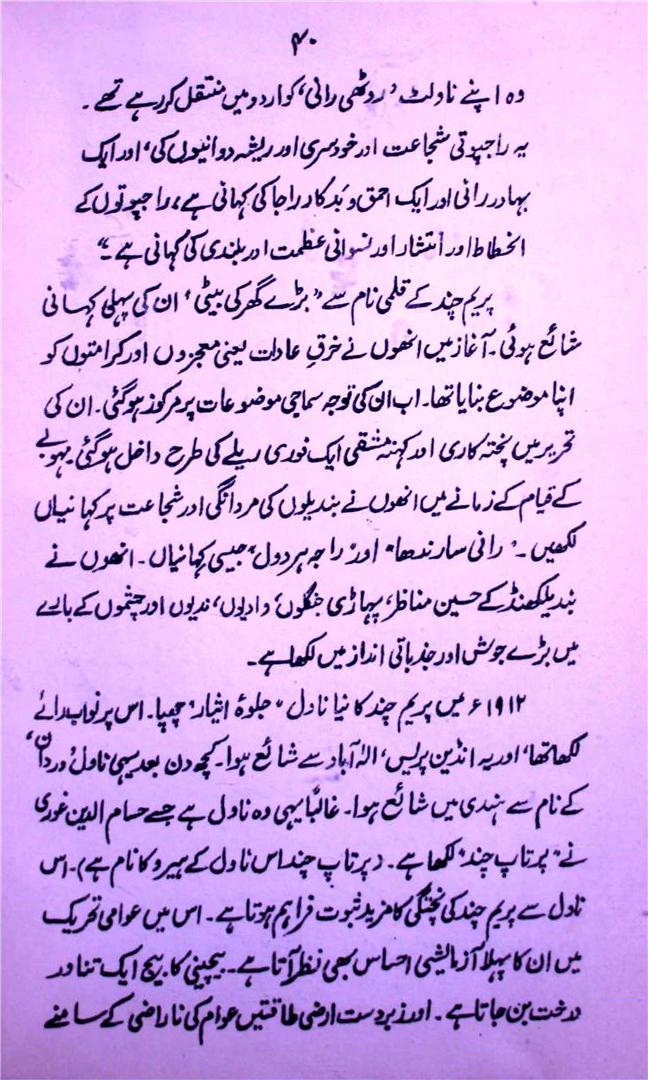 ۴۰
وہ اپنے ناولٹ ’روٹھی رانی‘ کو اردو میں منتقل کر رہے تھے۔
یہ راجپوتی شجاعت اور خودسری اور ریشہ دوانیوں کی، اور ایک
بہادر رانی اور ایک احمق و بدکار راجا کی کہانی ہے، راجپوتوں کے
انحطاط اور انتشار اور نسوانی عظمت اور بلندی کی کہانی ہے۔“
پریم چند کے قلمی نام سے ”بڑے گھر کی بیٹی‘ ان کی پہلی کہانی
شائع ہوئی۔ آغاز میں انھوں نے خرقِ عادات یعنی معجزوں اور کرامتوں کو
اپنا موضوع بنایا تھا۔ اب ان کی توجہ سماجی موضوعات پر مرکوز ہوگئی۔ ان کی
تحریر میں پختہ کاری اور کہنہ مشقی ایک فوری ریلے کی طرح داخل ہوگئی مہوبے
کے قیام کے زمانے میں انھوں نے بندیلوں کی مردانگی اور شجاعت پر کہانیاں
لکھیں۔ ”رانی سارندھا“ اور ”راجہ ہردول“ جیسی کہانیاں۔ انھوں نے
بندیلکھنڈ کے حسین مناظر، پہاڑی جنگلوں، وادیوں، ندیوں اور چشموں کے بارے
میں بڑے جوش اور جذباتی انداز میں لکھا ہے۔
۱۹۱۲ء میں پریم چند کا نیا ناول ”جلوۂ ایثار“ چھپا۔ اس پر نواب رائے
لکھا تھا، اور یہ انڈین پریس، الٰہ آباد سے شائع ہوا۔ کچھ دن بعد یہی ناول ’وردان‘
کے نام سے ہندی میں شائع ہوا۔ غالباً یہی وہ ناول ہے جسے حسام الدین غوری
نے ”پرتاپ چند“ لکھا ہے۔ (پرتاپ چند اس ناول کے ہیرو کا نام ہے)۔ اس
ناول سے پریم چند کی پختگی کا مزید ثبوت فراہم ہوتا ہے۔ اس میں عوامی تحریک
میں ان کا پہلا آزمائشی احساس بھی نظر آتا ہے۔ بےچینی کا بیج ایک تناور
درخت بن جاتا ہے۔ اور زبردست ارضی طاقتیں عوام کی ناراضی کے سامنے